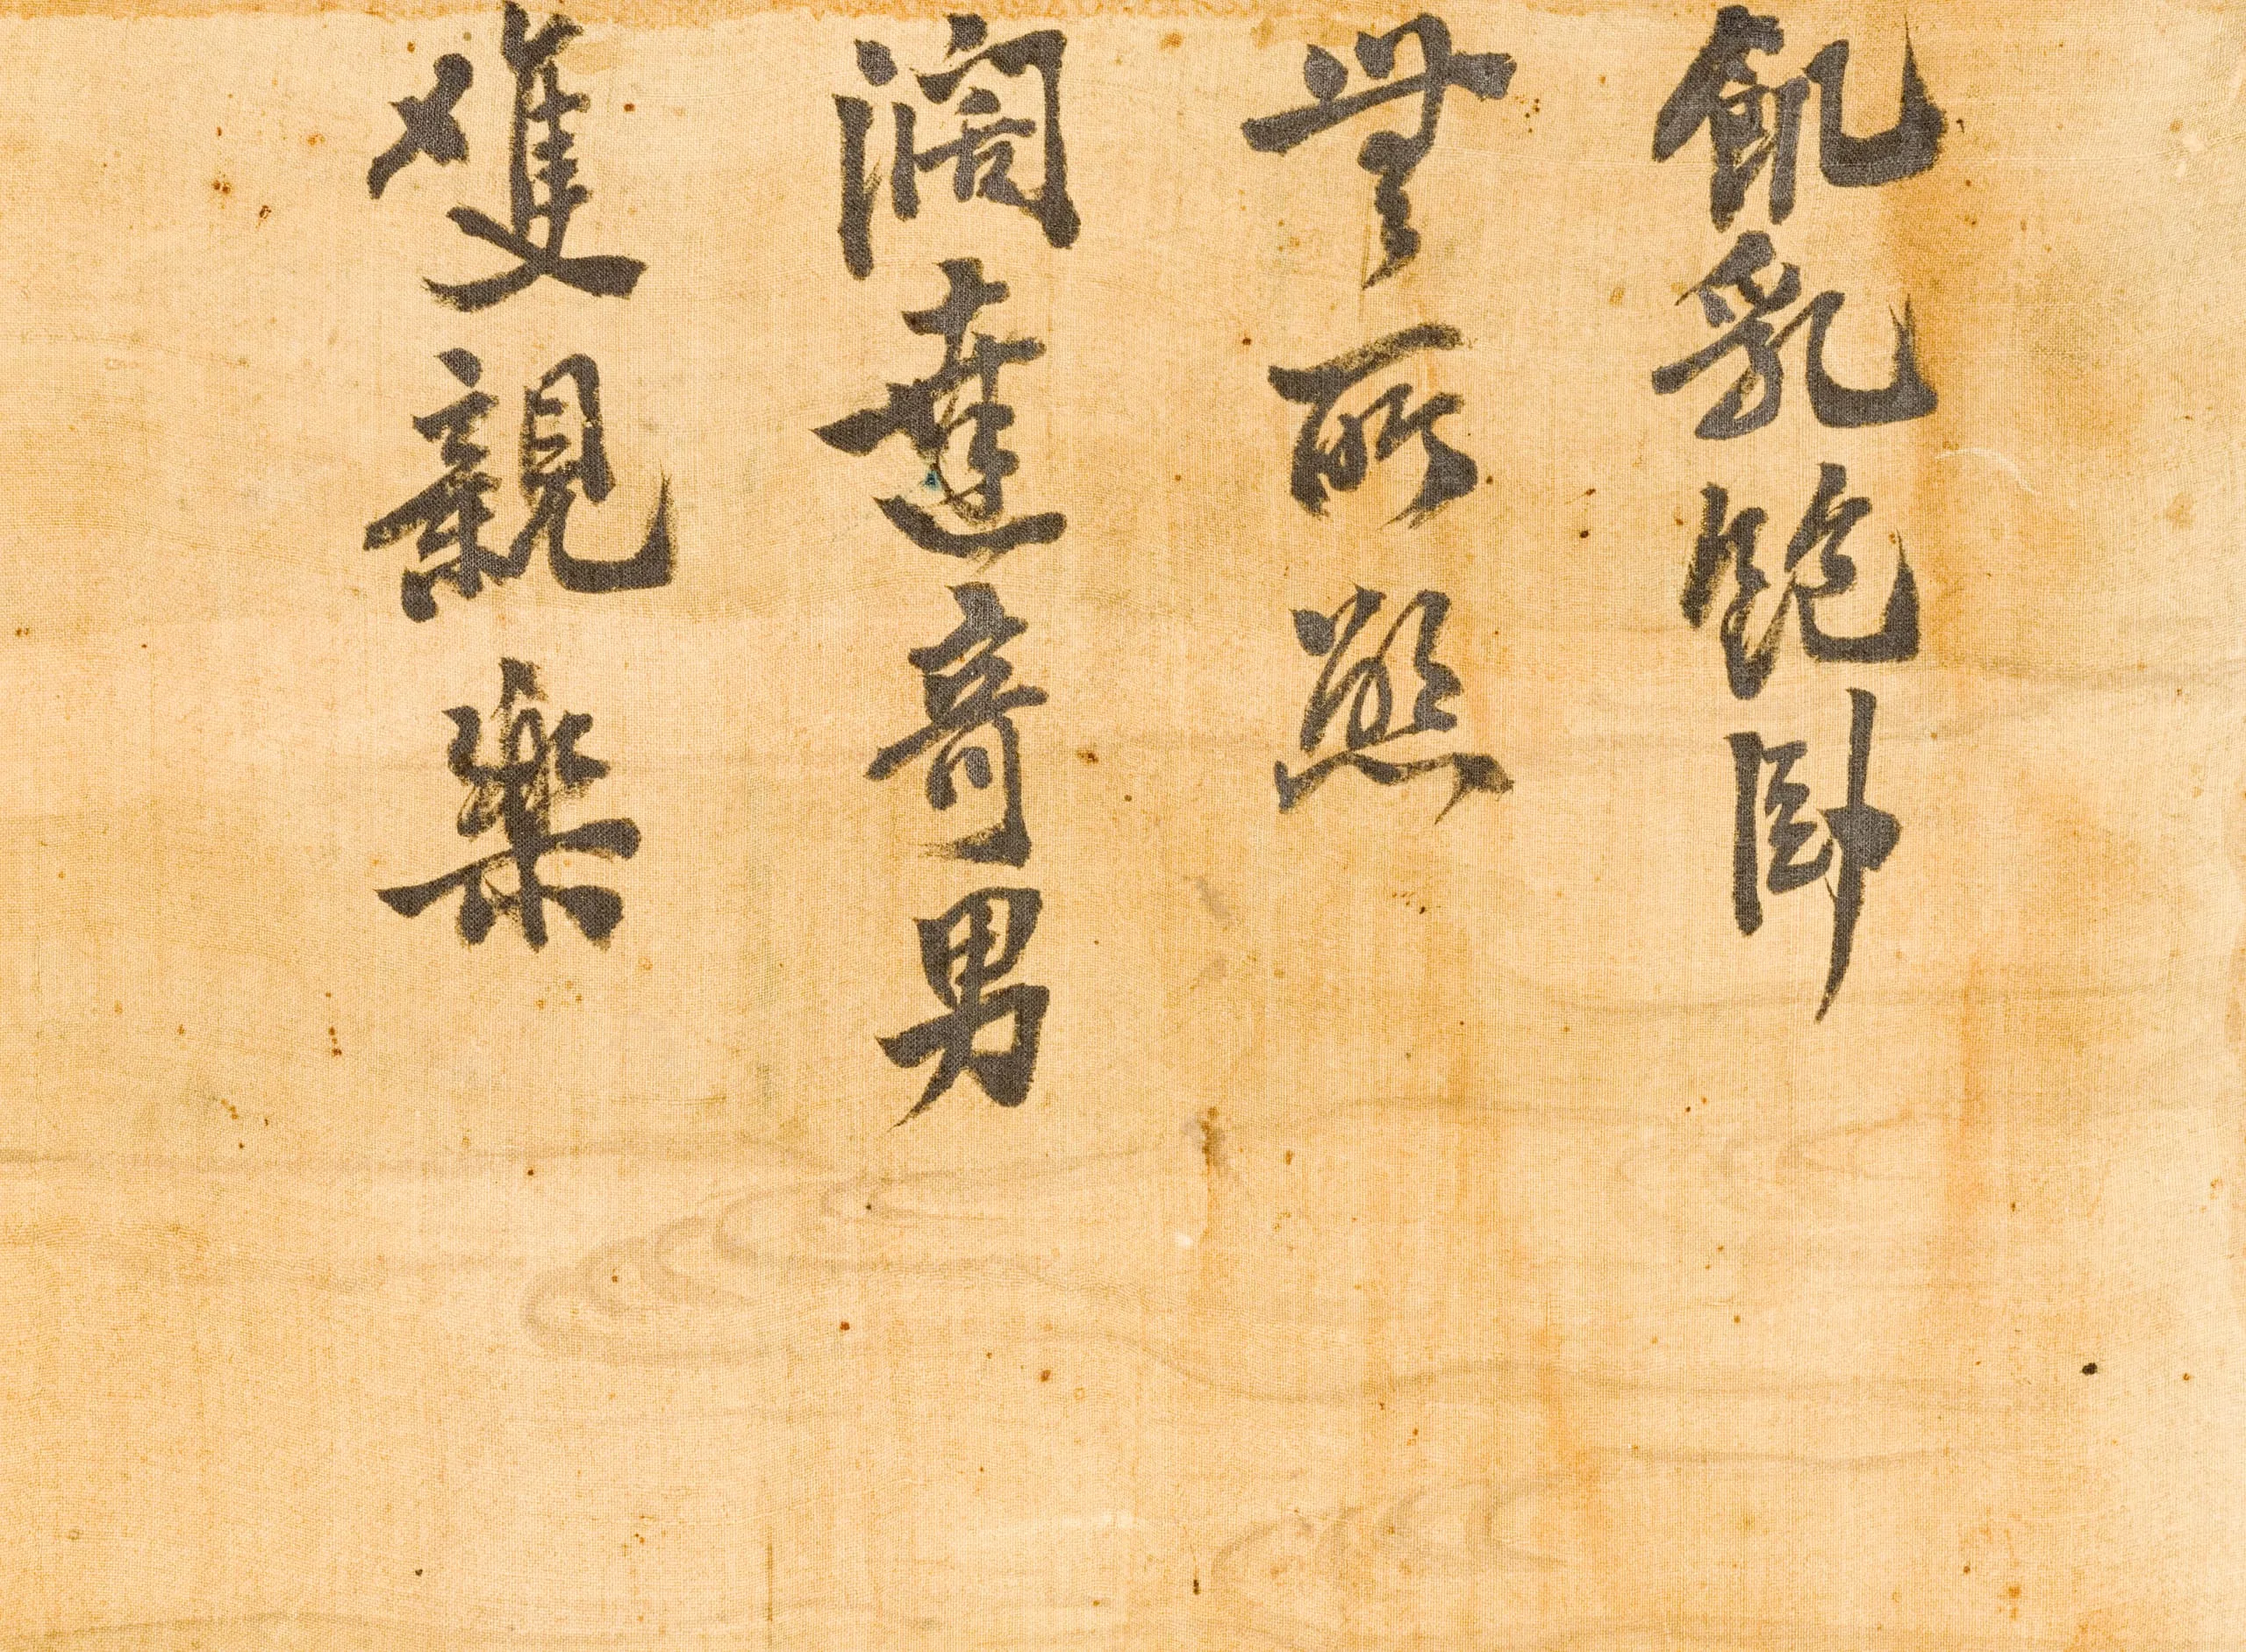 飢乳飽臥
無所
濶達奇男
雙親樂